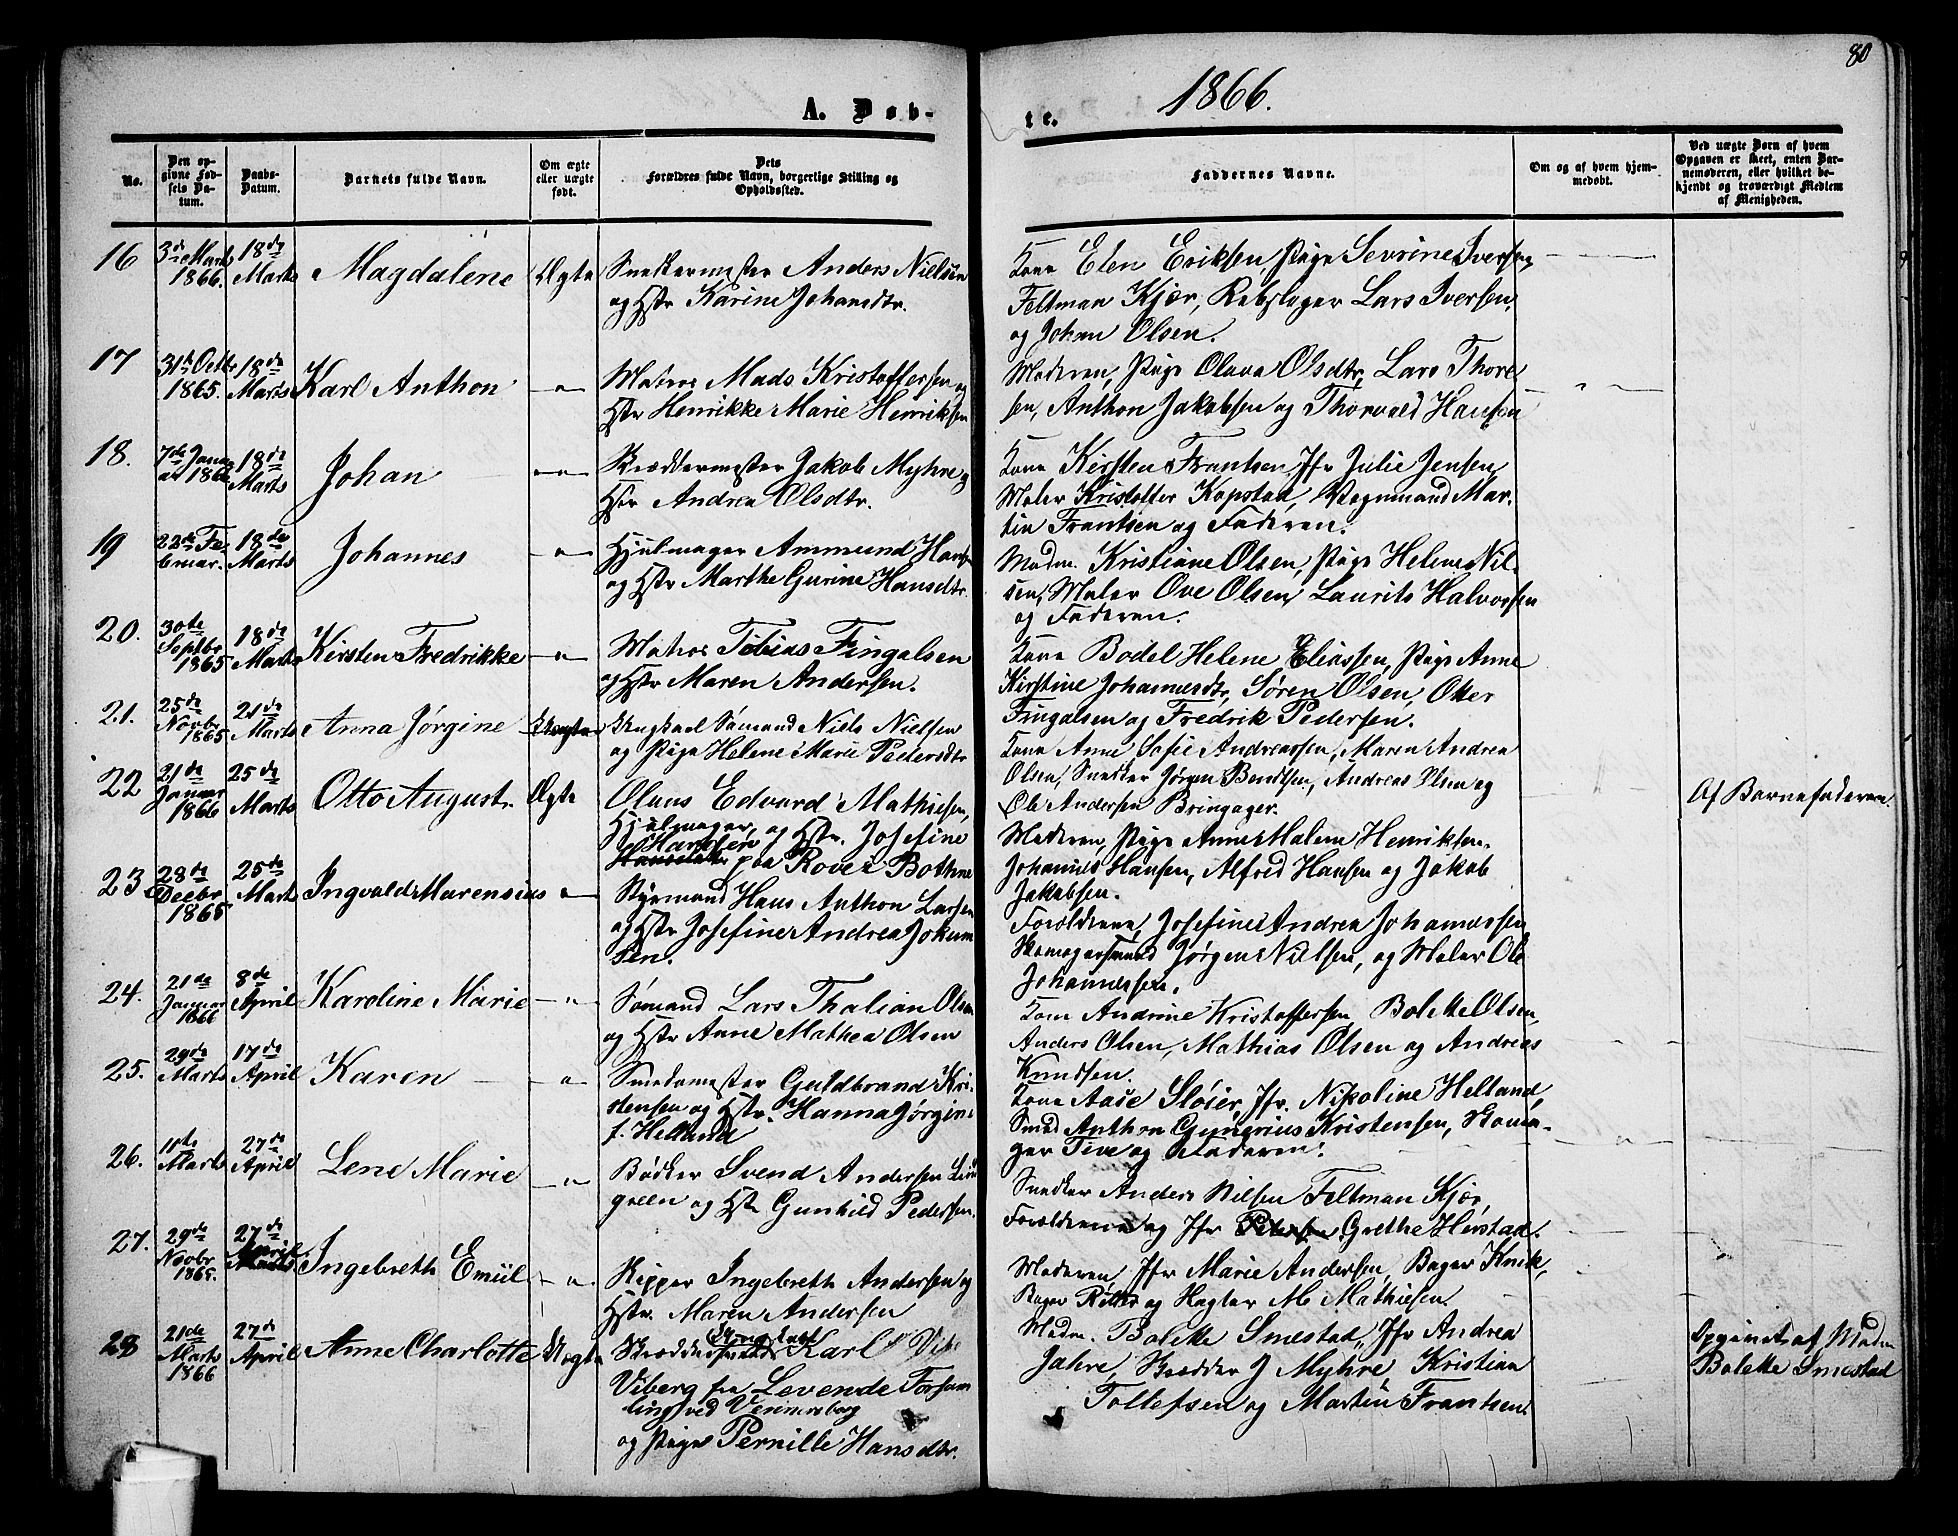 80
1866.
A. Døb-
te.
No.
Den op-
givne Fød-
sels Da-
tum.
Daabs-
Datum.
Barnets fulde Navn.
Om ægte
eller uægte
født.
Dets
Forældres fulde Navn, borgerlige Stilling og
Opholdssted.
Faddernes Navne.
Om og af hvem hjem-
medøbt.
Ved uægte Børn af hvem
Opgaven er skeet, enten Bar-
nemoderen, eller hvilket be-
kjendt og troværdigt Medlem
af Menigheden.
16
3de Marts
1866.
18de
Marts
Magdalene
Ægte
Snekkermester Anders Nielsen
og Hstr Karine Johansdtr.
Kone Elen Eriksen, Pige Sevrine Iversen,
Feltman Kjær, Rebslager Lars Iversen,
og Johan Olsen.
17
31te Octbr
1865.
18de
Marts
Karl Anthon
— " —
Matros Mads Kristoffersen og
Hstr Henrikke Marie Henriksen
Moderen, Pige Olava Olsdtr, Lars Thore
sen, Anthon Jakobsen og Thorvald Hansen
18.
7de Janu
ar 1866
18de
Marts
Johan
— " —
Skræddermester Jakob Myhre og
Hstr Andrea Olsdtr.
Kone Kirsten Frantsen, Jfr Julie Jensen,
Maler Kristoffer Kopstad, Vognmand Mar-
tin Frantsen og Faderen.
19
22de Fe
bruar.
18de
Marts
Johannes
— " —
Hjulmager Ammund Hansen
og Hstr Marthe Gurine Hansdtr.
Madm. Kristiane Olsen, Pige Helene Nil-
sen, Maler Ove Olsen, Laurits Halvorsen
og Faderen.
20.
30te
Septbr
1865
18de
Marts
Kirsten Fredrikke
— " —
Matros Tobias Fingalsen
og Hstr Maren Andersen.
Kone Bodel Helene Eliassen, Pige Anne
Kirstine Johannesdtr, Søren Olsen, Otter
Fingalsen og Fredrik Pedersen.
21.
25de
Novbr
1865
21de
Marts
Anna Jørgine
Uægte
Ungkarl Sømand Niels Nielsen
og Pige Helene Marie Pedersdtr
Kone Anne Sofie Andreassen, Maren Andrea
Olsen, Snedker Jørgen Bendtsen, Andreas Olsen og
Ole Andersen Bringager.
Af Barnefaderen.
22
21de
Januar
1866
25de
Marts
Otto August.
Ægte
Olaus Edvard Mathiesen,
Hjulmager, og Hstr. Josefine
Hansen
paa Rove i Bothne
Moderen, Pige Anne Malene Henriksen.
Johannes Hansen, Alfred Hansen og Jakob
Jakobsen.
23
28de
Decbr
1865
25de
Marts
Ingvald Marensius
— " —
Styrmand Hans Anthon Larsen
og Hstr Josefine Andrea Jokum
sen.
Forældrene, Josefine Andrea Johannessen,
Skomagersvend Jørgen Nielsen, og Maler Ole
Johannessen.
24.
21de
Januar
1866
8de
April
Karoline Marie
— " —
Sømand Lars Thalian Olsen
og Hstr Anne Mathea Olsen
Kone Andrine Kristoffersen Bolette Olsen,
Anders Olsen, Mathias Olsen og Andreas
Knudsen.
25.
29de
Marts
17de
April
Karen
— " —
Smedemester Guldbrand Kri-
stensen og Hstr. Hanna Jørgine
f. Helland
Kone Aase Sløier, Jfr. Nikoline Helland,
Smed Anthon Gunerius Kristensen, Skoma-
ger Tive og Faderen.
26.
11te
Marts
27de
April
Lene Marie
— " —
Bødker Svend Andersen Lind
green og Hstr Gunhild Pedersen.
Snedker Anders Nilsen Feltman Kjær,
Forældrene og Jfr Grethe Herstad.
27.
29de
Novbr
1865.
27de
April
Ingebreth Emiil
— " —
Skipper Ingebreth Andersen og
Hstr. Maren Andersen
Moderen, Jfr Marie Andersen, Bager Knik,
Bager og M Mathiesen.
28
21de
Marts
1866
27de
April
Anne Charlotte
Uægte
Ungkarl
Skræddersvend Karl
Viberg fra Levende Forsam
ling ved Vennersborg
og Pige Pernille Hansdtr.
Madm. Bolette Smestad, Jfr Andrea
Jahre, Skrædder J Myhre, Kristian
Tollefsen og Martin Frantsen.
Opgivet af Madm
Bolette Smestad